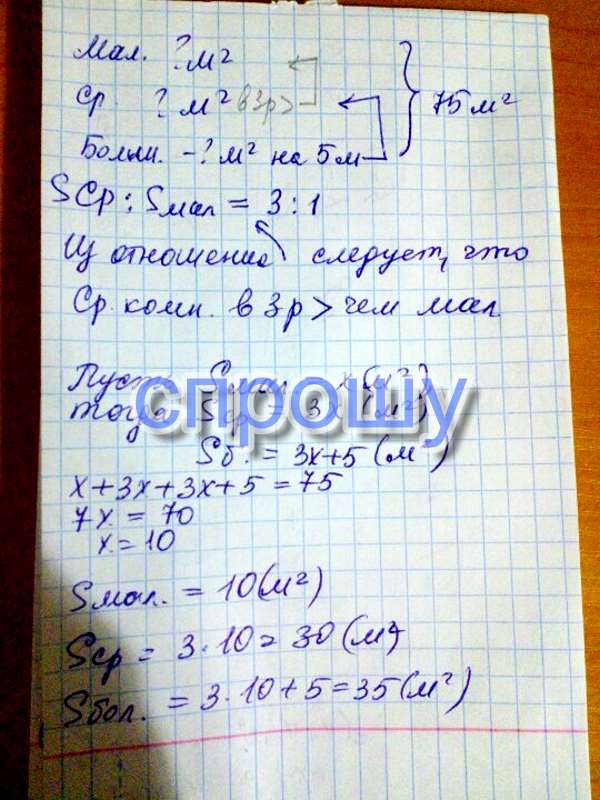 Мал. ? м²
Ср. ? м² в 3р > } 75 м²
Больш. - ? м² на 5 м
Sср : Sмал = 3 : 1
Из отношение следует, что
Ср. комн. в 3р > чем мал
Пусть Sмал x (м²)
тогда Sср = 3x (м²)
спрошу
Sб. = 3x+5 (м )
x + 3x + 3x + 5 = 75
7x = 70
x = 10
Sмал. = 10 (м²)
Sср = 3 · 10 = 30 (м²)
Sбол. = 3 · 10 + 5 = 35 (м²)